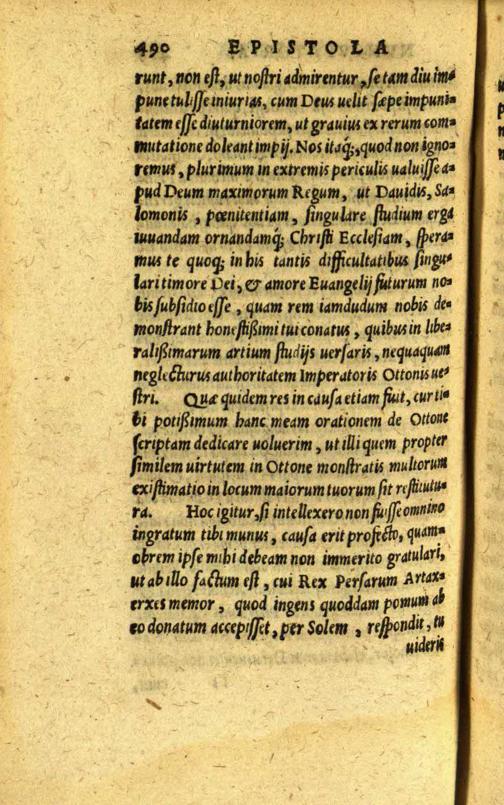 490 EPISTOLA
runt, non est, ut nostri admirentur, se tam diu im-
pune tulisse iniurias, cum Deus uelit sæpe impuni-
tatem esse diuturniorem, ut grauius ex rerum com-
mutatione doleant impij. Nos itaq́;, quod non igno-
remus, plurimum in extremis periculis ualuisse a-
pud Deum maximorum Regum, ut Dauidis, Sa-
lomonis, pœnitentiam, singulare studium erga
iuuandam ornandamq́; Christi Ecclesiam, spera-
mus te quoq; in his tantis difficultatibus singu-
lari timore Dei, & amore Euangelij futurum no-
bis subsidio esse, quam rem iamdudum nobis de-
monstrant honestißimi tui conatus, quibus in libe-
ralißimarum artium studijs uersaris, nequaquam
neglecturus authoritatem Imperatoris Ottonis ue-
stri. Quæ quidem res in causa etiam fuit, cur ti-
bi potißimum hanc meam orationem de Ottone
scriptam dedicare uoluerim, ut illi quem propter
similem uirtutem in Ottone monstratis multorum
existimatio in locum maiorum tuorum sit restitutu-
ra. Hoc igitur, si intellexero non fuisse omnino
ingratum tibi munus, causa erit profecto, quam-
obrem ipse mihi debeam non immerito gratulari,
ut ab illo factum est, cui Rex Persarum Artax-
erxes memor, quod ingens quoddam pomum ab
eo donatum accepisset, per Solem, respondit, tu
uideris